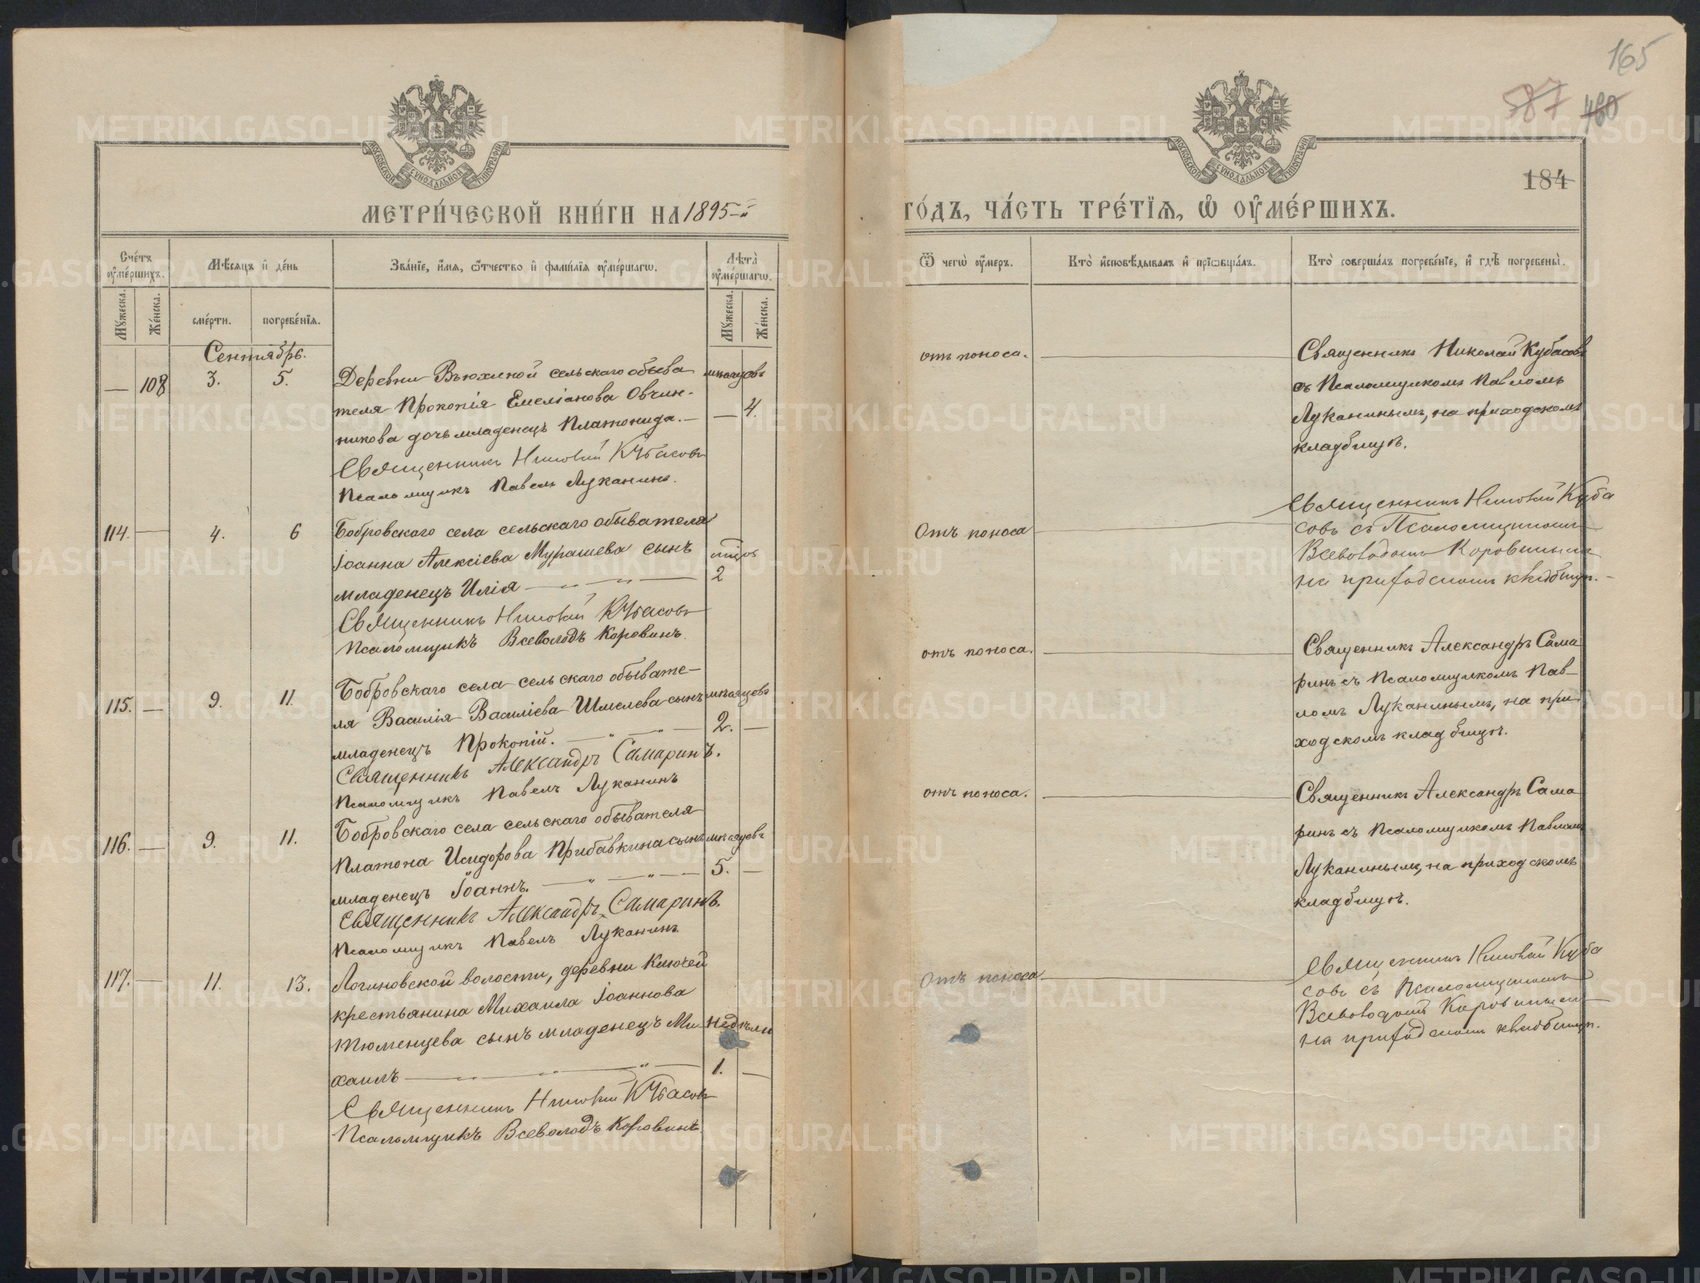 165
587 480
184
МЕТРИ́ЧЕСКОЙ КНИ́ГИ НА 1895-й
ГО́ДЪ, ЧА́СТЬ ТРЕ́ТІѦ, Ѡ҆ ОУ҆МЕ́РШИХЪ.
Сче́тъ оу҆ме́ршихъ.
Мѣ́сѧцъ и҆ де́нь
Зва́нїе, и҆́мѧ, ѻ҆́тчество и҆ фами́лїѧ оу҆ме́ршагѡ.
Лѣ́та оу҆ме́ршагѡ.
Ѿ чегѡ̀ оу҆́меръ.
Кто̀ и҆сповѣ́дывалъ и҆ прїѡбща́лъ.
Кто̀ соверша́лъ погребе́нїе, и҆ гдѣ̀ погребены̀.
Мꙋ́жеска.
Же́нска.
сме́рти.
погребе́нїѧ.
Мꙋ́жеска.
Же́нска.
Сентябрь.
— 108 3. 5. Деревни Вьюхиной сельскаго обыва
теля Прокопія Емеліанова Овчин-
никова дочь младенецъ Платонида. —
мѣсяцовъ
— 4.
Священникъ Николай Кубасовъ
Псаломщикъ Павелъ Луканинъ.
отъ поноса.
Священникъ Николай Кубасовъ
съ Псаломщикомъ Павломъ
Луканинымъ, на приходскомъ
кладбищѣ.
114. — 4. 6 Бобровскаго села сельскаго обывателя
Іоанна Алексіева Мурашева сынъ
младенецъ Илія
2
Священникъ Николай Кубасовъ
Псаломщикъ Всеволодъ Коровинъ.
Отъ поноса
Священникъ Николай Куба
совъ съ Псаломщикомъ
Всеволодомъ Коровинымъ
на приходскомъ кладбищѣ. —
115. — 9. 11. Бобровскаго села сельскаго обывате-
ля Василія Василіева Шмелева сынъ
младенецъ Прокопій.
мѣсяцовъ
2. —
Священникъ Александръ Самаринъ.
Псаломщикъ Павелъ Луканинъ
отъ поноса.
Священникъ Александръ Сама
ринъ съ Псаломщикомъ Пав-
ломъ Луканинымъ, на при-
ходскомъ кладбищѣ.
116. — 9. 11. Бобровскаго села сельскаго обывателя
Платона Исидорова Прибавкина сынъ
младенецъ Іоаннъ.
мѣсяцовъ
5. —
Священникъ Александръ Самаринъ.
Псаломщикъ Павелъ Луканинъ
отъ поноса.
Священникъ Александръ Сама
ринъ съ Псаломщикомъ Павломъ
Луканинымъ, на приходскомъ
кладбищѣ.
117. — 11. 13. Логиновской волости, деревни Ключей
крестьянина Михаила Іоаннова
Тюменцева сынъ младенецъ Ми
хаилъ
недѣли
1. —
Священникъ Николай Кубасовъ
Псаломщикъ Всеволодъ Коровинъ
Отъ поноса
Священникъ Николай Куба
совъ съ Псаломщикомъ
Всеволодомъ Коровинымъ
на приходскомъ кладбищѣ.
METRIKI.GASO-URAL.RU